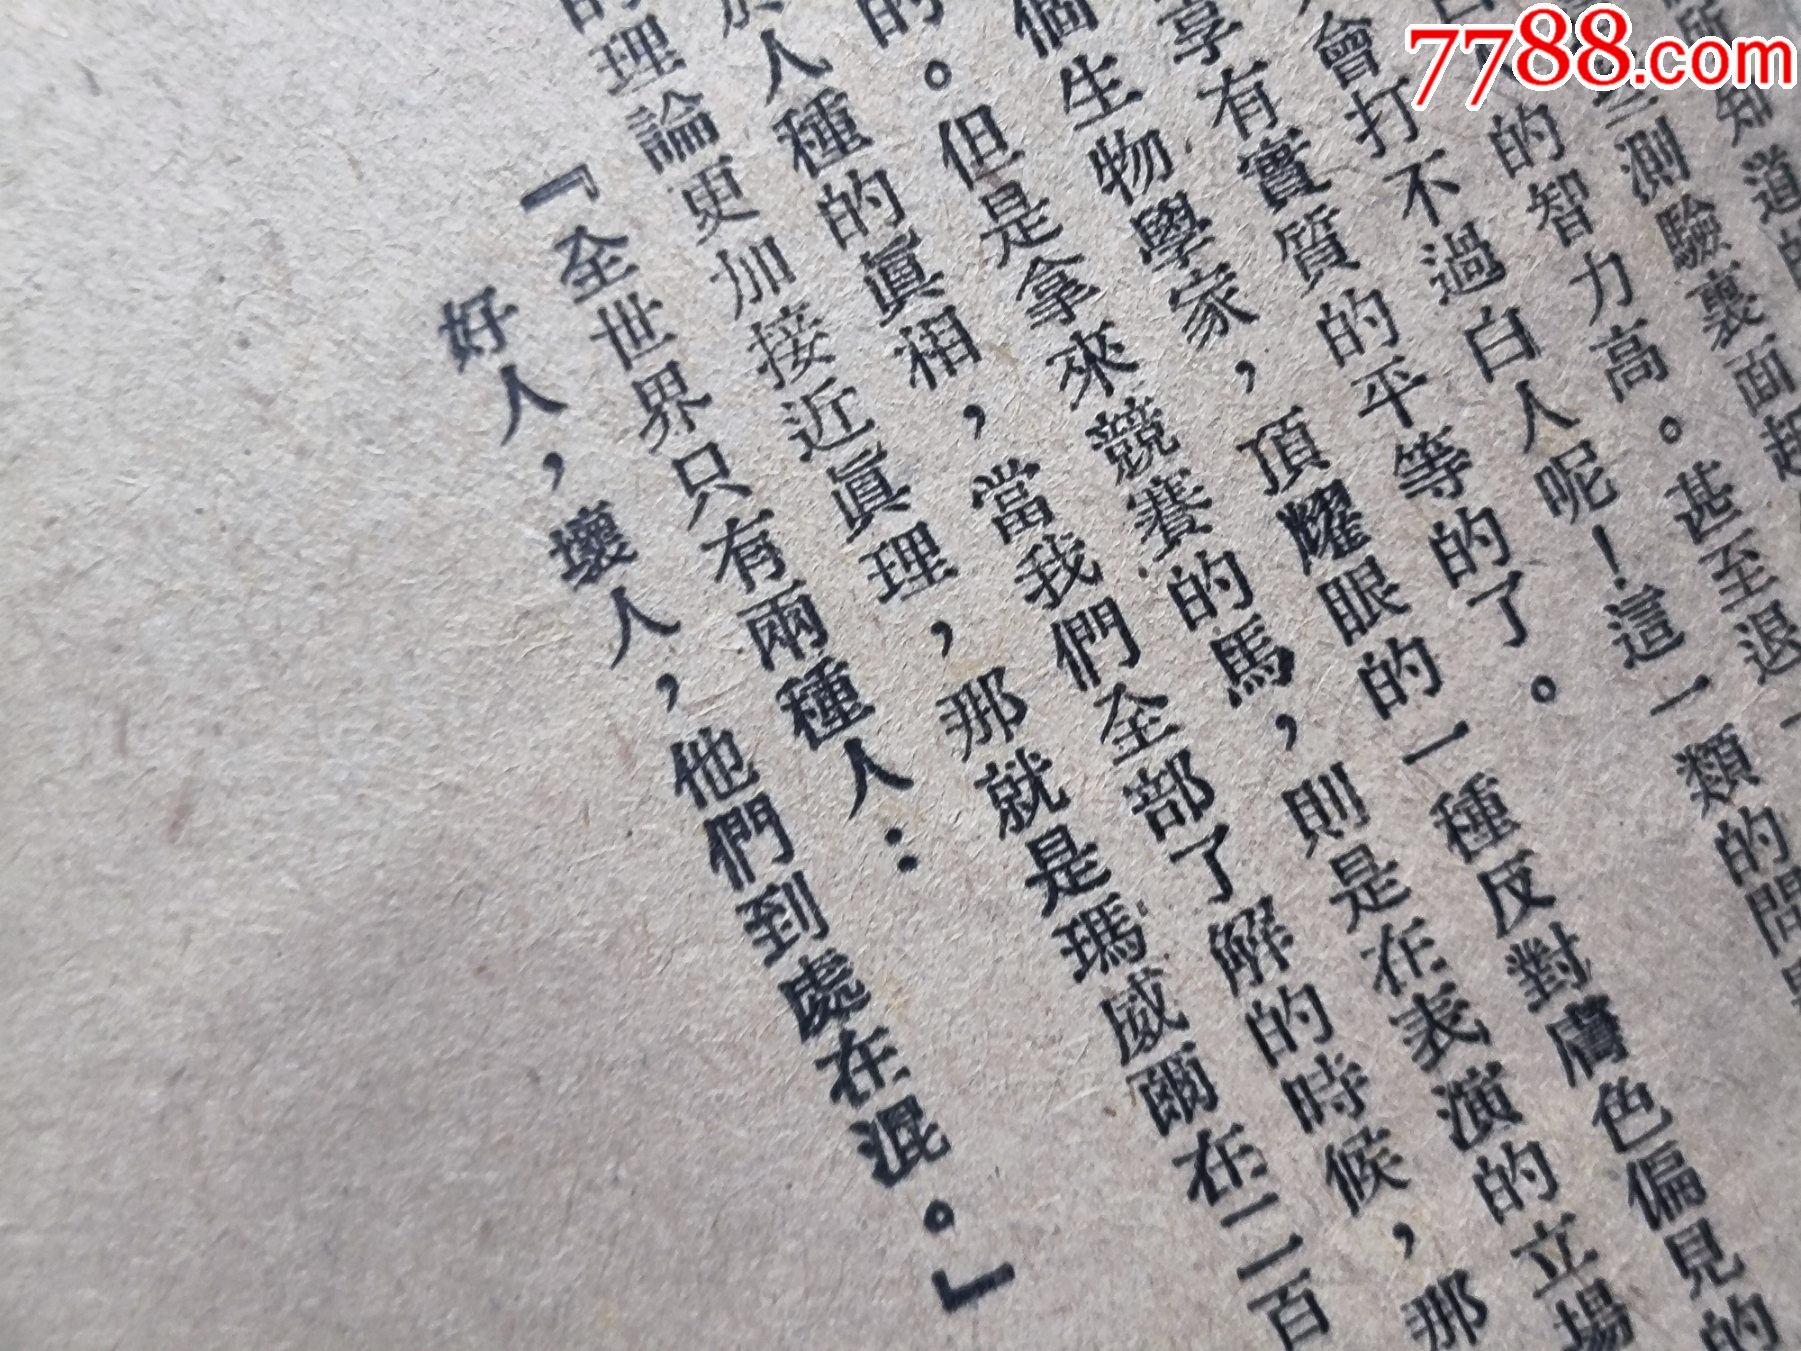 7788.com
所知道的
些測驗裏面超
的智力高。甚至退一
會打不過白人呢！這一類的問
享有實質的平等的了。
個生物學家，頂耀眼的一種反對膚色偏見的
的。但是拿來競賽的馬，則是在表演的立場
於人種的眞相，當我們全部了解的時候，那
的理論更加接近眞理，那就是瑪威爾在二百
『全世界只有兩種人：
好人，壞人，他們到處在混。』